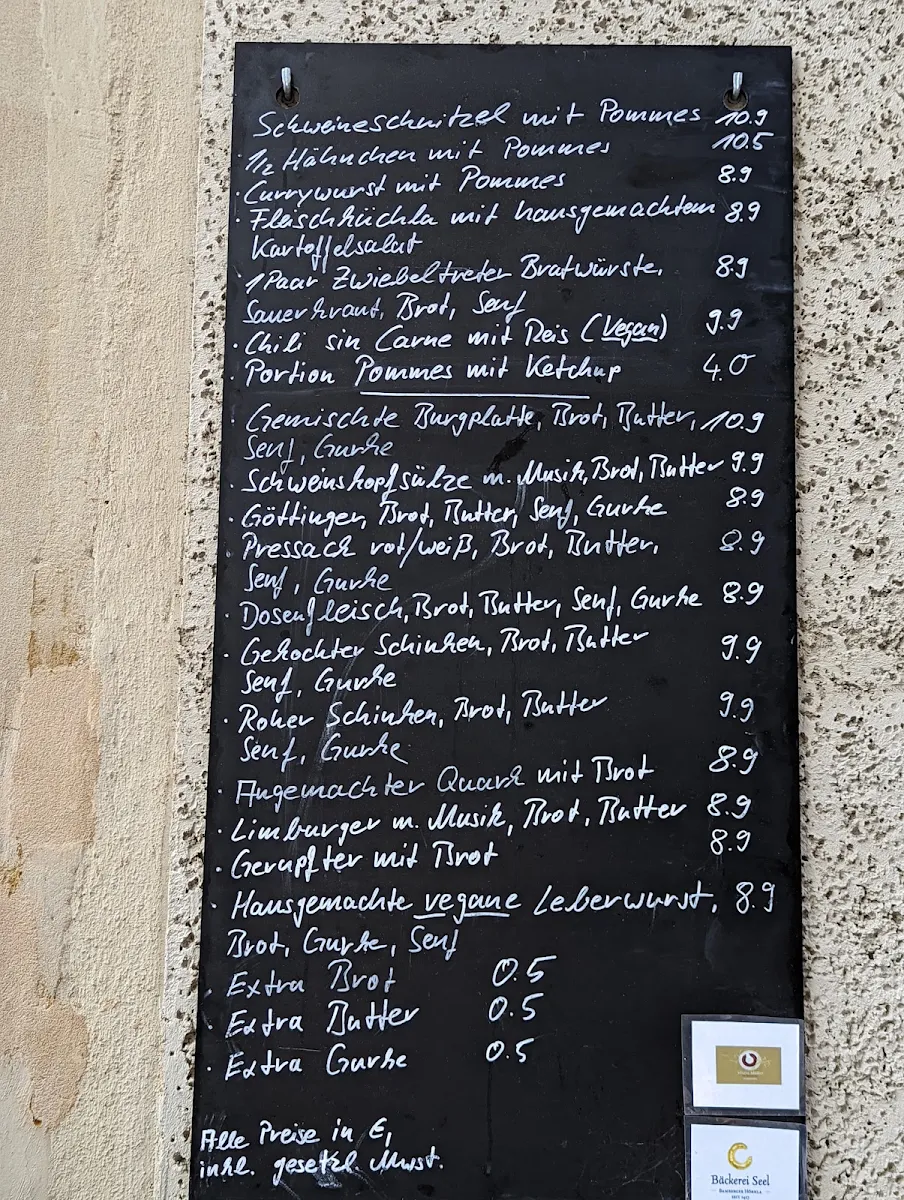 Schweineschnitzel mit Pommes 10.9
· 1/2 Hähnchen mit Pommes 10.5
· Currywurst mit Pommes 8.9
· Fleischküchla mit hausgemachtem 8.9
Kartoffelsalat
· 1 Paar Zwiebeltreter Bratwürste, 8.9
Sauerkraut, Brot, Senf
· Chili sin Carne mit Reis (Vegan) 9.9
· Portion Pommes mit Ketchup 4.0
· Gemischte Burgplatte, Brot, Butter, 10.9
Senf, Gurke
· Schweinskopfsülze m. Musik, Brot, Butter 9.9
· Göttinger, Brot, Butter, Senf, Gurke 8.9
· Pressack rot/weiß, Brot, Butter, 8.9
Senf, Gurke
· Dosenfleisch, Brot, Butter, Senf, Gurke 8.9
· Gekochter Schinken, Brot, Butter 9.9
Senf, Gurke
· Roher Schinken, Brot, Butter 9.9
Senf, Gurke
· Angemachter Quark mit Brot 8.9
· Limburger m. Musik, Brot, Butter 8.9
· Gerupfter mit Brot 8.9
· Hausgemachte vegane Leberwurst, 8.9
Brot, Gurke, Senf
· Extra Brot 0.5
· Extra Butter 0.5
· Extra Gurke 0.5
Alle Preise in €,
inkl. gesetzl Mwst.
Bäckerei Seel